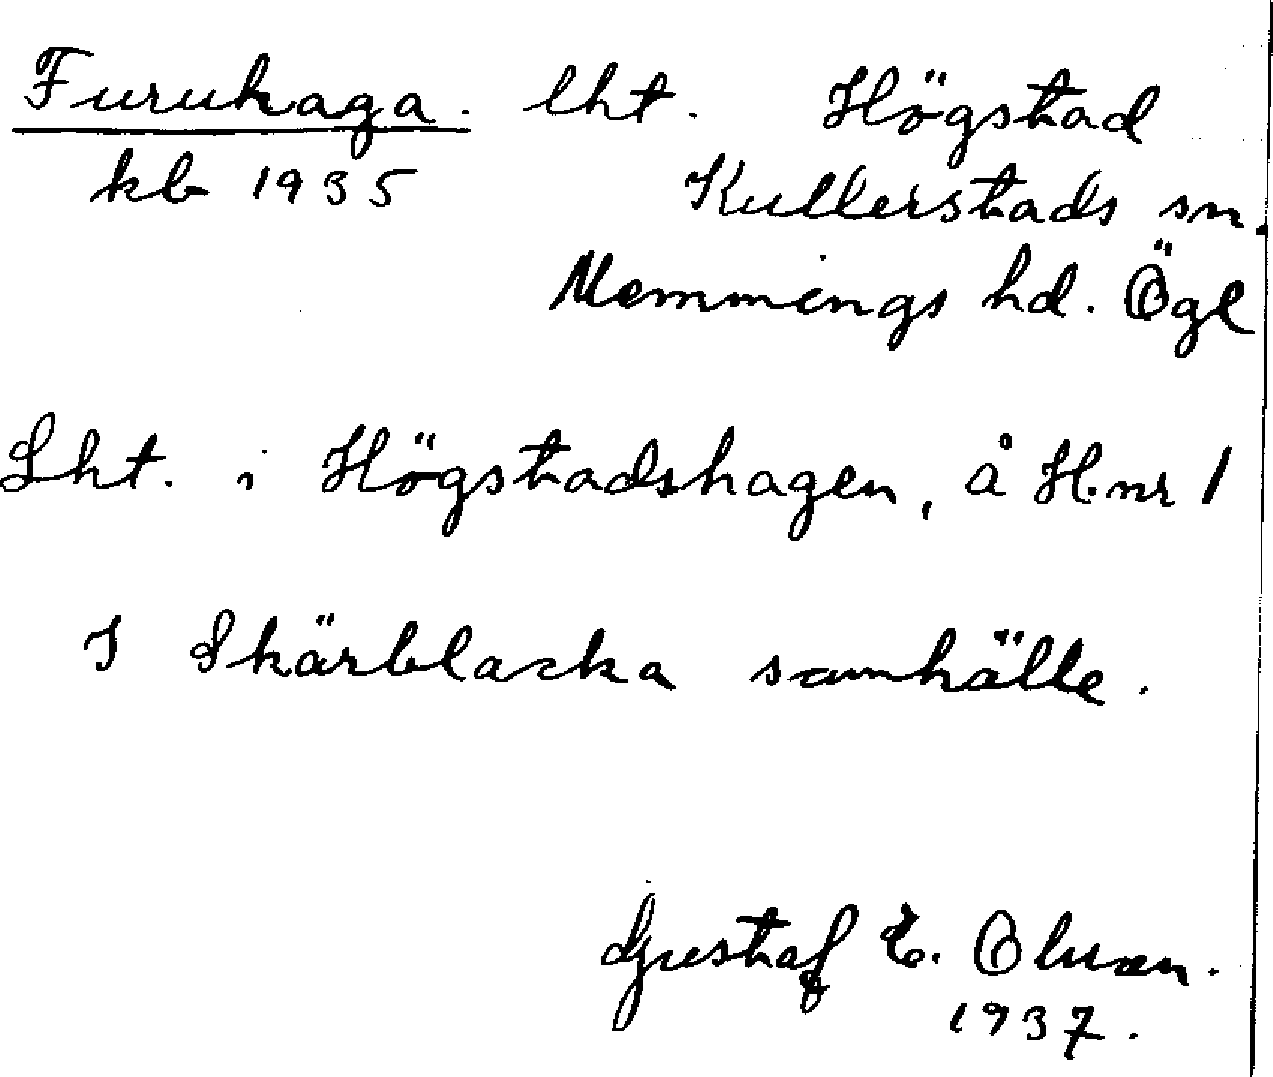 Furuhaga. lht. Högstad
kb 1935 Kullerstads sn.
Memmings hd. Ögl
Lht. i Högstadshagen, å H. nr 1
I Skärblacka samhälle.
Gustaf E. Olusen.
1937.